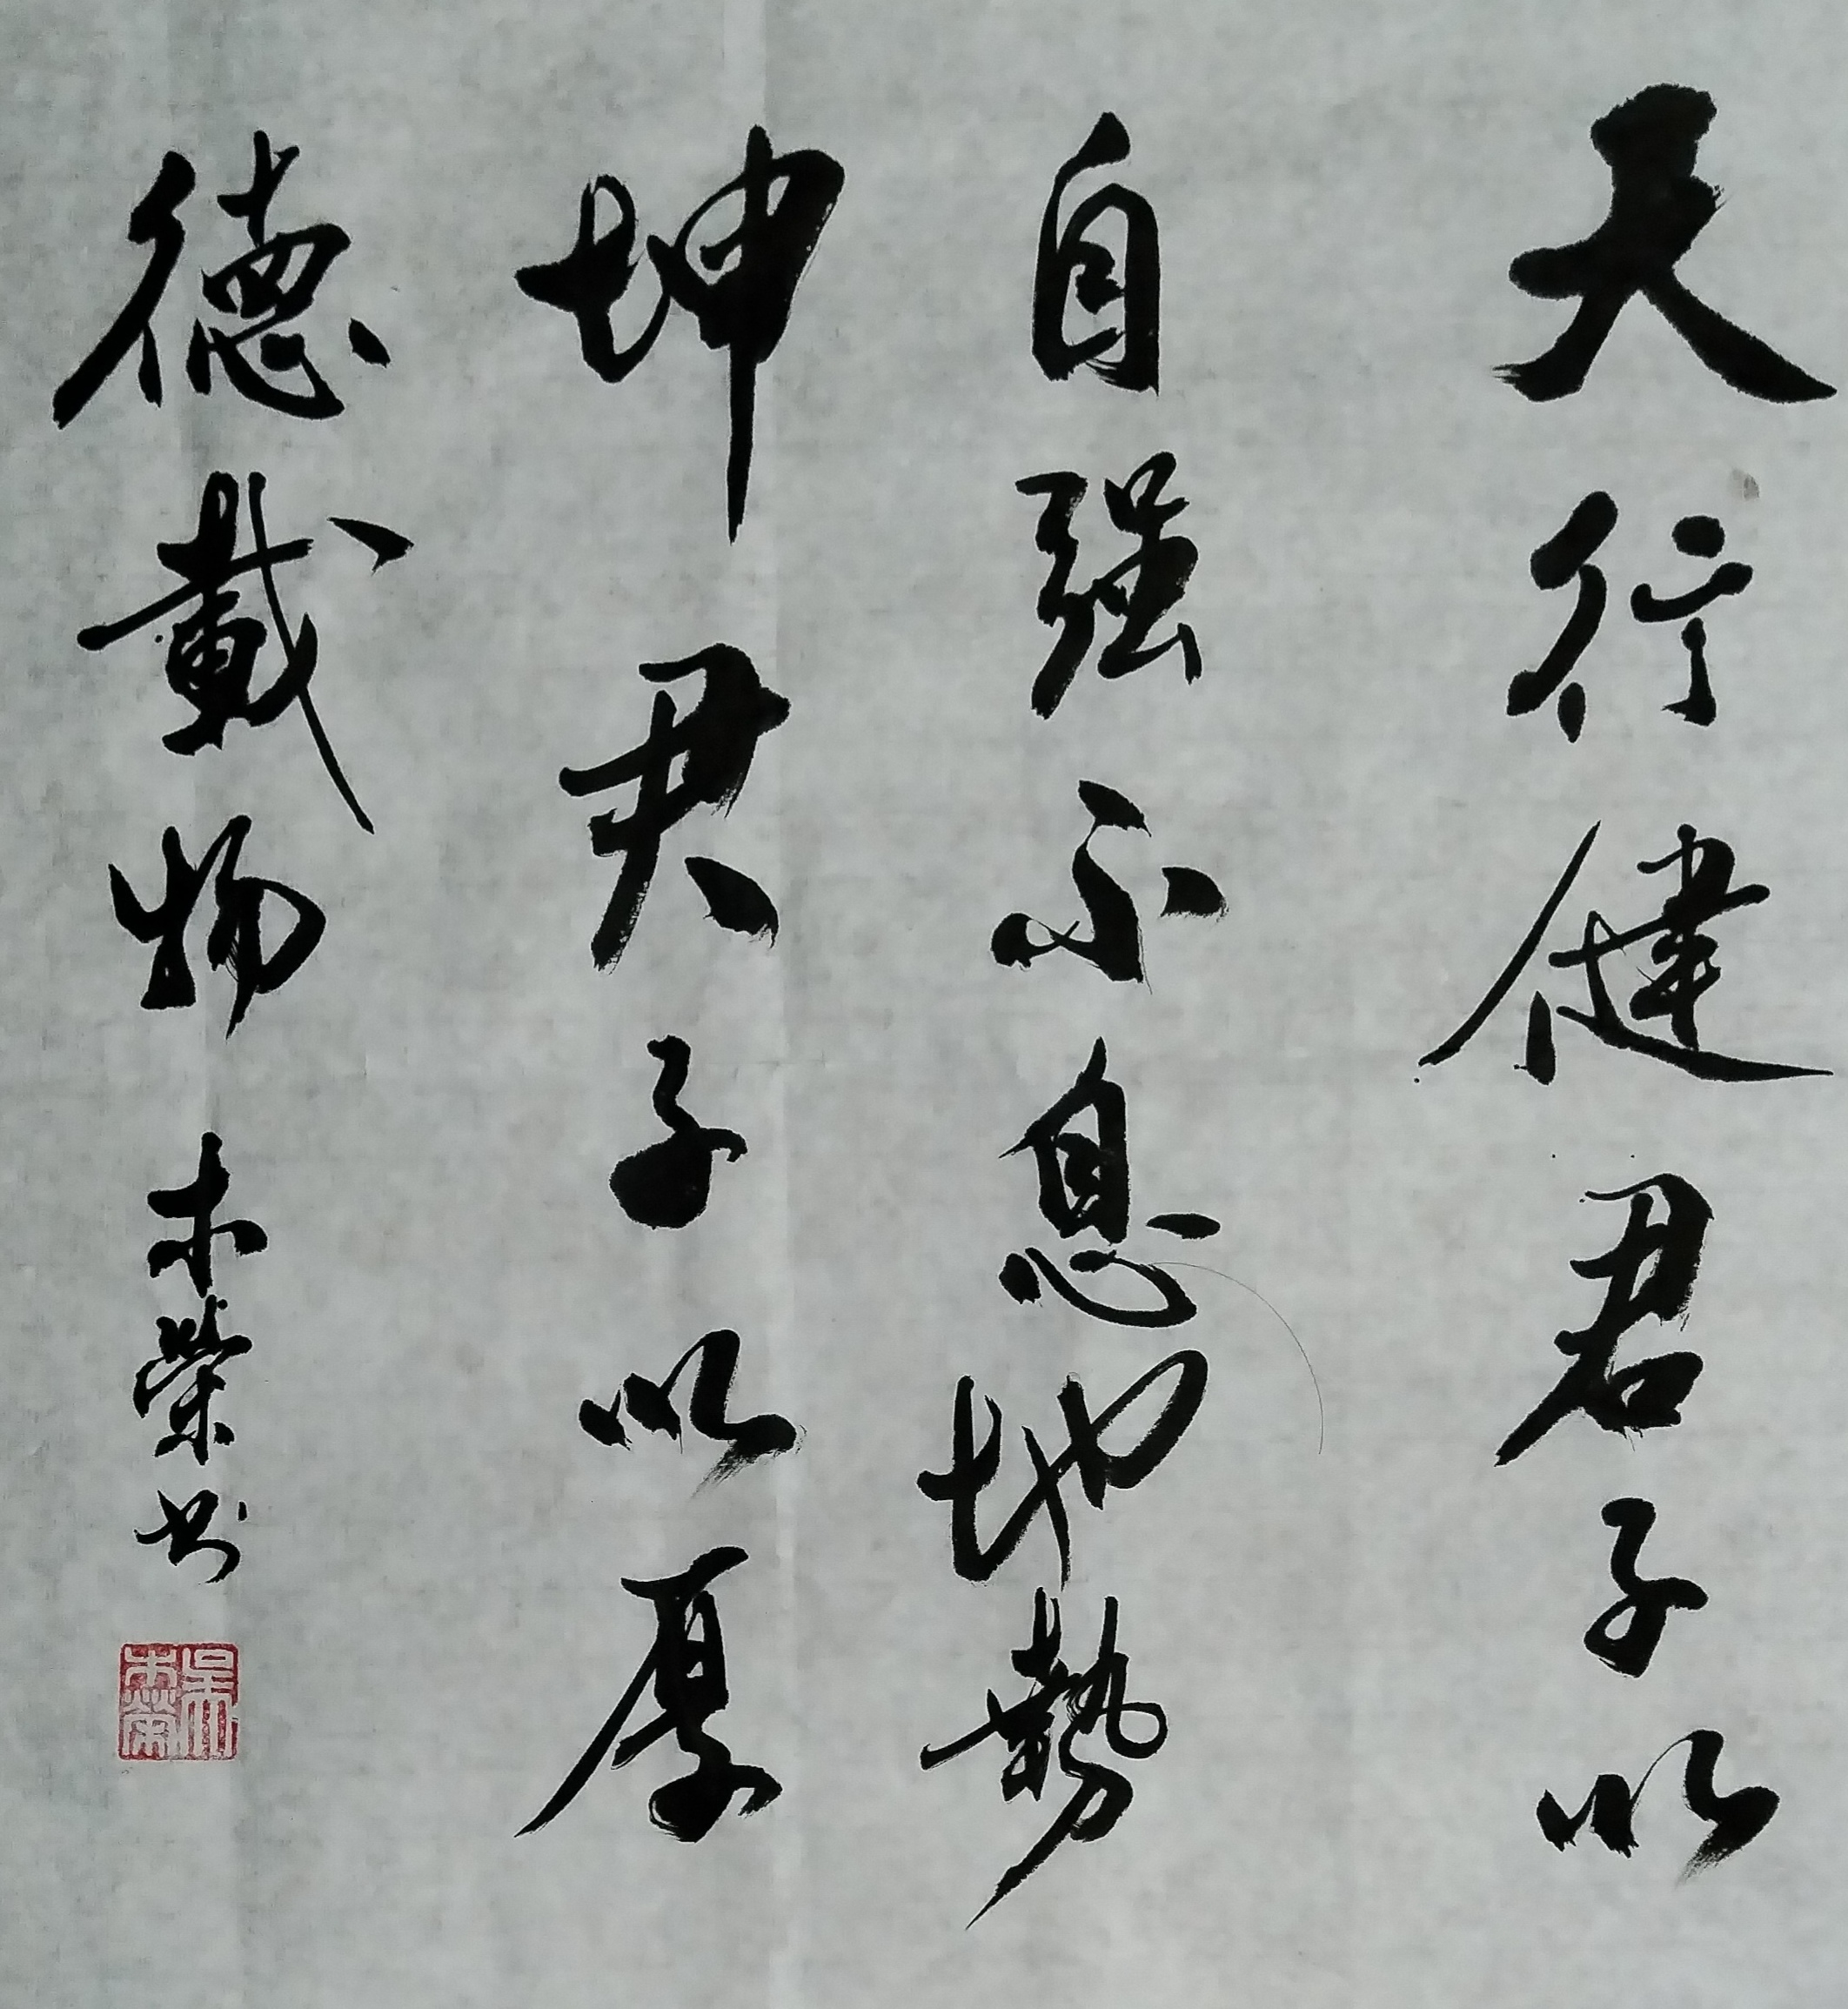 天行健君子以
自强不息地勢
坤君子以厚
德載物
木榮书